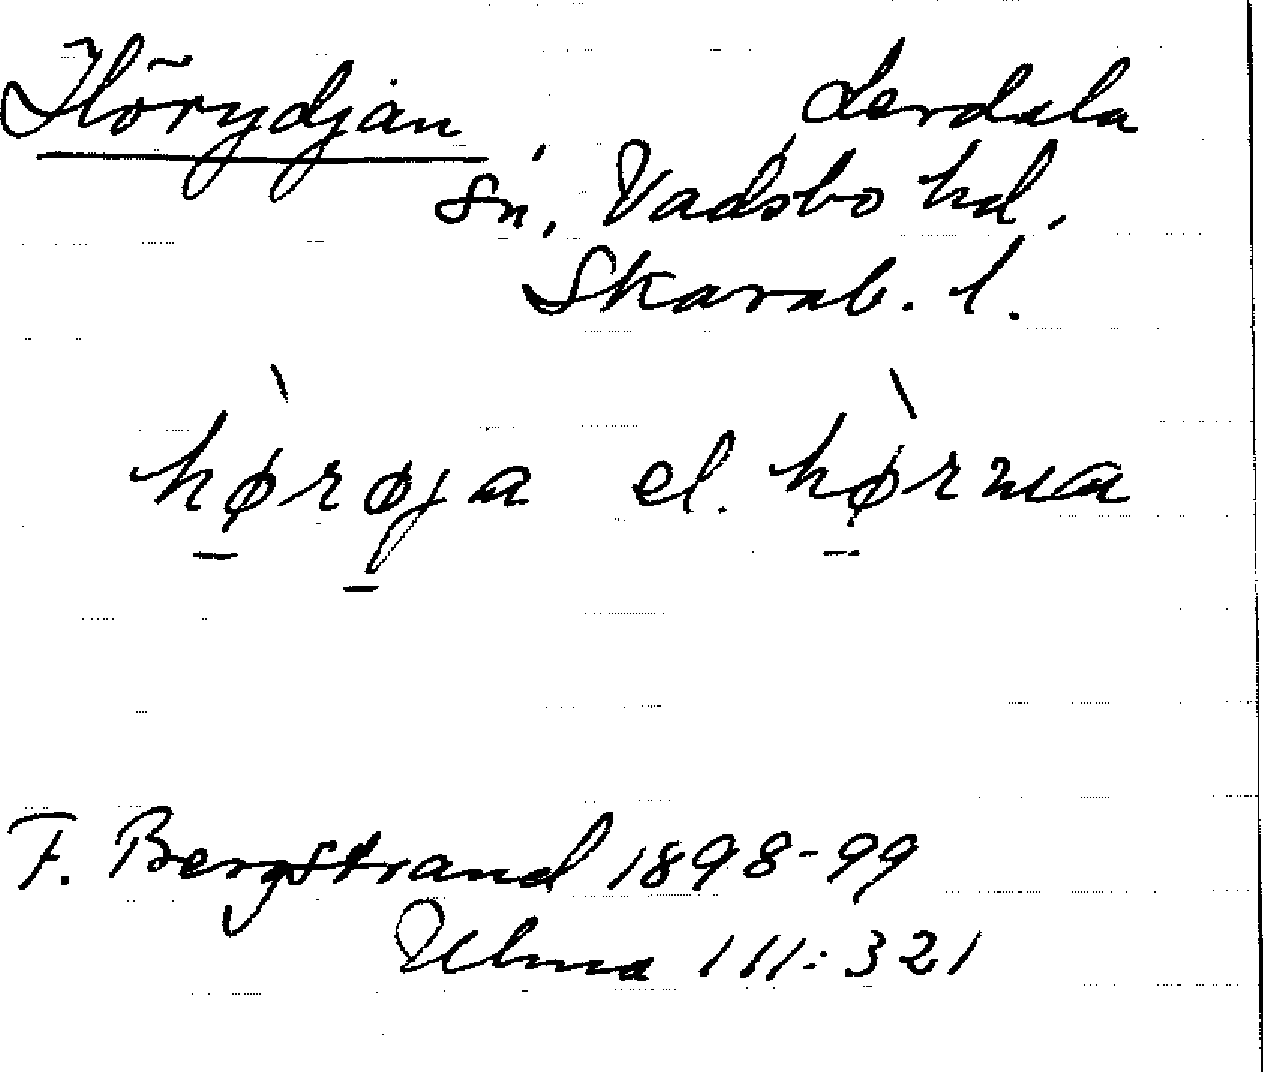 Hörydjan, Lerdala
sn, Vadsbo hd,
Skarab. l.
hø̱rø̱ja el. hø̱rna
F. Bergstrand 1898-99
Ulma 111:321